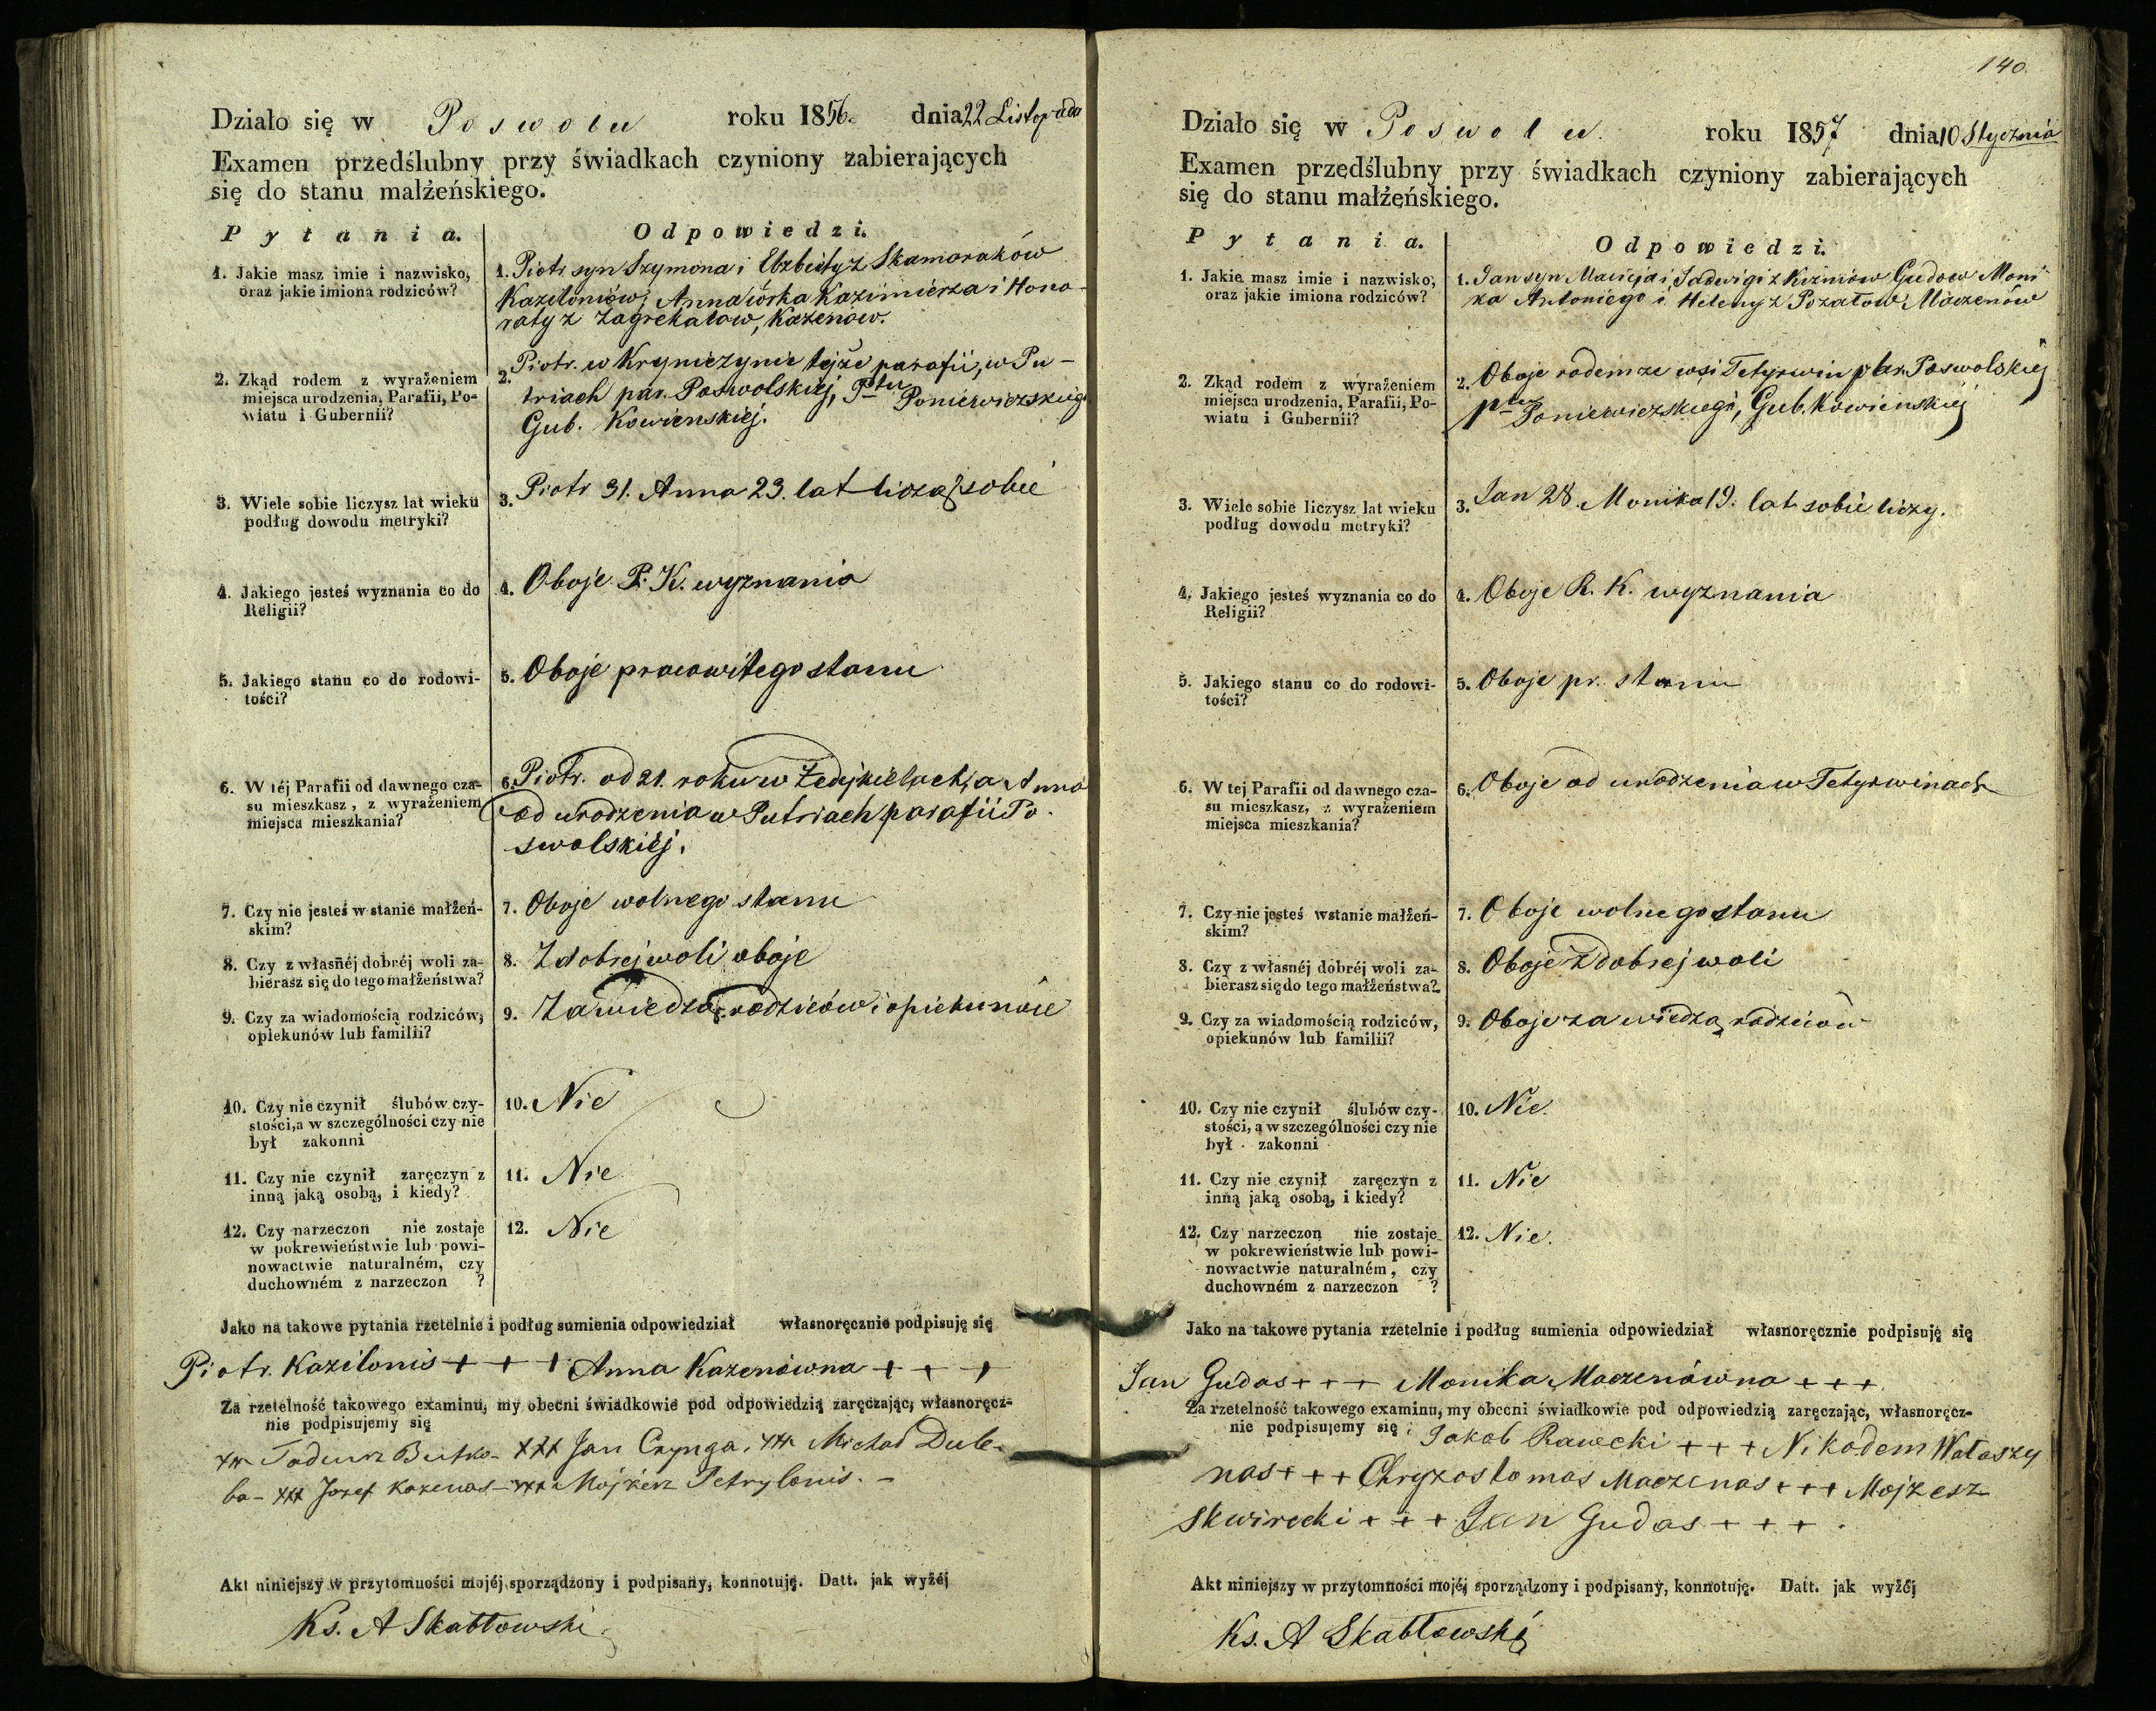 Działo się w Poswolu roku 1856. dnia 22 Listopada
Examen przedślubny przy świadkach czyniony zabierających
się do stanu malżeńskiego.
Pytania. Odpowiedzi.
1. Jakie masz imie i nazwisko,
oraz jakie imiona rodziców?
1. Piotr syn Szymona i Elzbiety z Skamoraków
Kaziloniów, Anna córka Kazimierza i Hono-
raty z Kazenow.
2. Zkąd rodem z wyrażeniem
miejsca urodzenia, Parafii, Po-
wiatu i Gubernii?
2. Piotr. w tejże parafii, w Pu-
triach par. Poswolskiéj, Ptu Poniewiezskiego
Gub. Kowienskiéj.
3. Wiele sobie liczysz lat wieku
podług dowodu metryki?
3. Piotr 31. Anna 23. lat liczą sobie
4. Jakiego jesteś wyznania co do
Religii?
4. Oboje R. K. wyznania
5. Jakiego stanu co do rodowi-
tości?
5. Oboje pracowitego stanu
6. W téj Parafii od dawnego cza-
su mieszkasz, z wyrażeniem
miejsca mieszkania?
6. Piotr. od 21. roku w a Anna
od urodzenia w Putriach parafii Po-
swolskiéj.
7. Czy nie jesteś w stanie małżeń-
skim?
7. Oboje wolnego stanu
8. Czy z własnéj dobréj woli za-
bierasz się do tego małżeństwa?
8. Z dobrej woli oboje
9. Czy za wiadomością rodziców,
opiekunów lub familii?
9. Za wiedzą rodziców i opiekunów
10. Czy nie czynił ślubów czy-
stości, a w szczególności czy nie
był zakonni
10. Nie
11. Czy nie czynił zaręczyn z
inną jaką osobą, i kiedy?
11. Nie
12. Czy narzeczon nie zostaje
w pokrewieństwie lub powi-
nowactwie naturalném, czy
duchowném z narzeczon ?
12. Nie
Jako na takowe pytania rzetelnie i podług sumienia odpowiedział własnoręcznie podpisuję się
Piotr. Kazilonis + + + Anna Kazenówna + + +
Za rzetelność takowego examinu, my obecni świadkowie pod odpowiedzią zaręczając, własnoręcz-
nie podpisujemy się
xxx Tadeusz xxx Jan xxx Michał Dule-
ba - xxx Jozef Kazenas - xxx Mojżesz Petrylonis. -
Akt niniejszy w przytomności mojéj sporządzony i podpisany, konnotuję. Datt. jak wyżéj
Ks. A Skabłowski.
140.
Działo się w Poswolu. roku 1857 dnia 10 Stycznia
Examen przędślubny przy świadkach czyniony zabierających
się do stanu małżeńskiego.
Pytania. Odpowiedzi.
1. Jakie masz imie i nazwisko,
oraz jakie imiona rodziców?
1. Jan syn Macieja i Jadwigi z Gudow Moni-
ka Antoniego i Heleny z Maczenów
2. Zkąd rodem z wyrażeniem
miejsca urodzenia, Parafii, Po-
wiatu i Gubernii?
2. Oboje rodem ze wsi Tetyrwin par. Poswolskiej
ptu Poniewiezskiego, Gub. Kowienskiéj
3. Wiele sobie liczysz lat wieku
podług dowodu metryki?
3. Jan 28. Monika 19. lat sobie liczy.
4. Jakiego jesteś wyznania co do
Religii?
4. Oboje R. K. wyznania
5. Jakiego stanu co do rodowi-
tości?
5. Oboje pr. stanu
6. W tej Parafii od dawnego cza-
su mieszkasz, z wyrażeniem
miejsca mieszkania?
6. Oboje od urodzenia w Tetyrwinach
7. Czy nie jesteś wstanie małżeń-
skim?
7. Oboje wolnego stanu
8. Czy z własnéj dobréj woli za-
bierasz się do tego małżeństwa?
8. Oboje z dobrej woli
9. Czy za wiadomością rodziców,
opiekunów lub familii?
9. Oboje za wiedzą rodziców
10. Czy nie czynił ślubów czy-
stości, a w szczególności czy nie
był zakonni
10. Nie.
11. Czy nie czynił zaręczyn z
inną jaką osobą, i kiedy?
11. Nie
12. Czy narzeczon nie zostaje
w pokrewieństwie lub powi-
nowactwie naturalném, czy
duchowném z narzeczon ?
12. Nie.
Jako na takowe pytania rzetelnie i podług sumienia odpowiedział własnoręcznie podpisuję się
Jan Gudas + + + Monika Maczenówna + + +
Za rzetelność takowego examinu, my obecni świadkowie pod odpowiedzią zaręczając, własnoręcz-
nie podpisujemy się. Jakob Rawecki + + + Nikodem Wałaszy
nas + + + Chryzostomas Maczenas + + + Mojzesz
Skwirecki + + + Jan Gudas + + + .
Akt niniejszy w przytomności mojéj sporządzony i podpisany, konnotuję. Datt. jak wyżéj
Ks. A Skabłowski